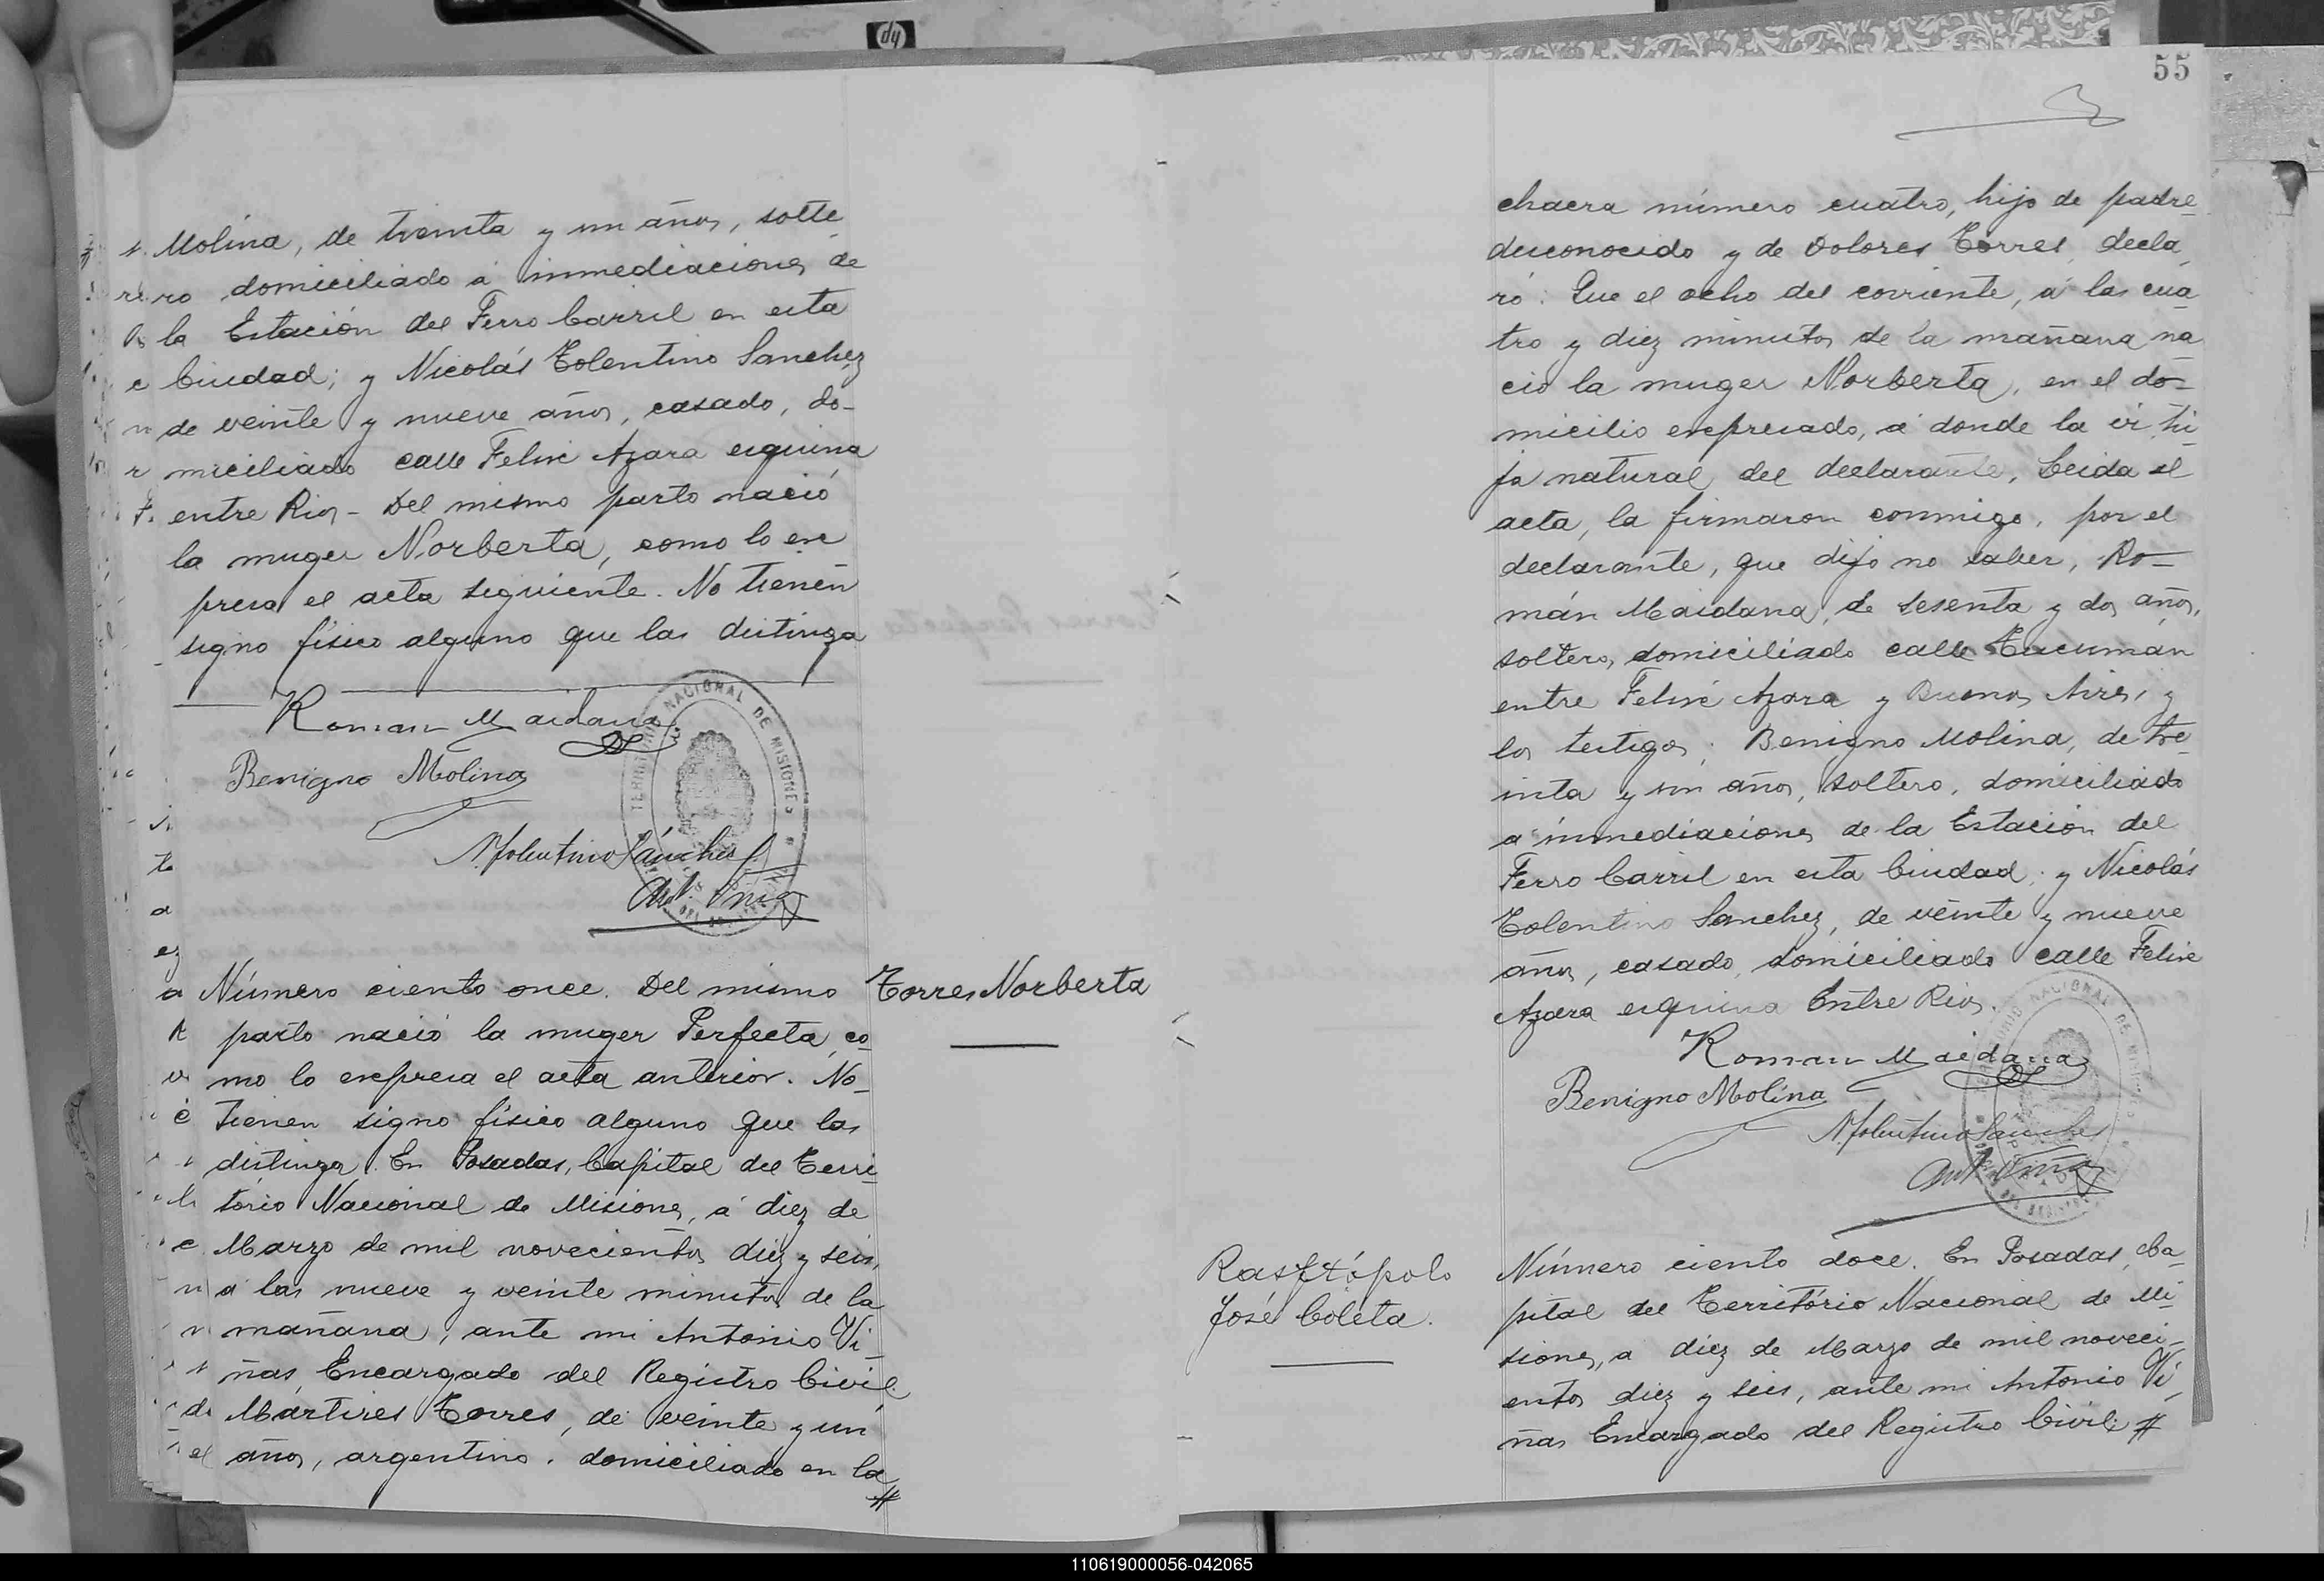 Molina, de treinta y un años, solte
ro domiciliado á inmediaciones de
la Estación del Ferro Carril en esta
Ciudad; y Nicolás Tolentino Sanchez
de veinte y nueve años, casado, do-
miciliado calle Felix Azara esquina
entre Rios - Del mismo parto nació
la muger Norberta, como lo ex
presa el acta siguiente. No tienen
signo físico alguno que las distinga
Roman Maidana
Benigno Molina
TERRITORIO NACIONAL DE MISIONES
N Tolentino Sánchez
Ant. Viñas
Torres Norberta
Número ciento once. Del mismo
parto nació la muger Perfecta, co
mo lo expresa el acta anterior. No
tienen signo físico alguno que las
distinga. En Posadas, Capital del Terri
tório Nacional de Misiones, á diez de
Marzo de mil novecientos diez y seis,
á las nueve y veinte minutos de la
mañana, ante mi Antonio Vi
ñas, Encargado del Registro Civil.
Mártires Torres, de veinte y un
años, argentino, domiciliado en la
#
55
chacra número cuatro, hijo de padre
desconocido y de Dolores Torres, decla
ró: Que el ocho del corriente, á las cua
tro y diez minutos de la mañana na
ció la muger Norberta, en el do-
micilio expresado, á donde la vi, hi
ja natural del declarante. Leida el
acta, la firmaron conmigo, por el
declarante, que dijo no saber, Ro-
mán Maidana, de sesenta y dos años,
soltero, domiciliado calle Tucumán
entre Felix Azara y Buenos Aires, y
los testigos: Benigno Molina, de tre
inta y un años, soltero, domiciliado
a inmediaciones de la Estación del
Ferro Carril en esta Ciudad; y Nicolás
Tolentino Sanchez, de veinte y nueve
años, casado, domiciliado calle Felix
Azara esquina Entre Rios.
Roman Maidana
Benigno Molina
N Tolentino Sanchez
Ant. Viñas
José Coleta.
Número ciento doce. En Posadas, Ca-
pital del Território Nacional de Mi
siones, a diez de Marzo de mil noveci-
entos diez y seis, ante mi Antonio Vi
ñas Encargado del Registro Civil; #
110619000056-042065